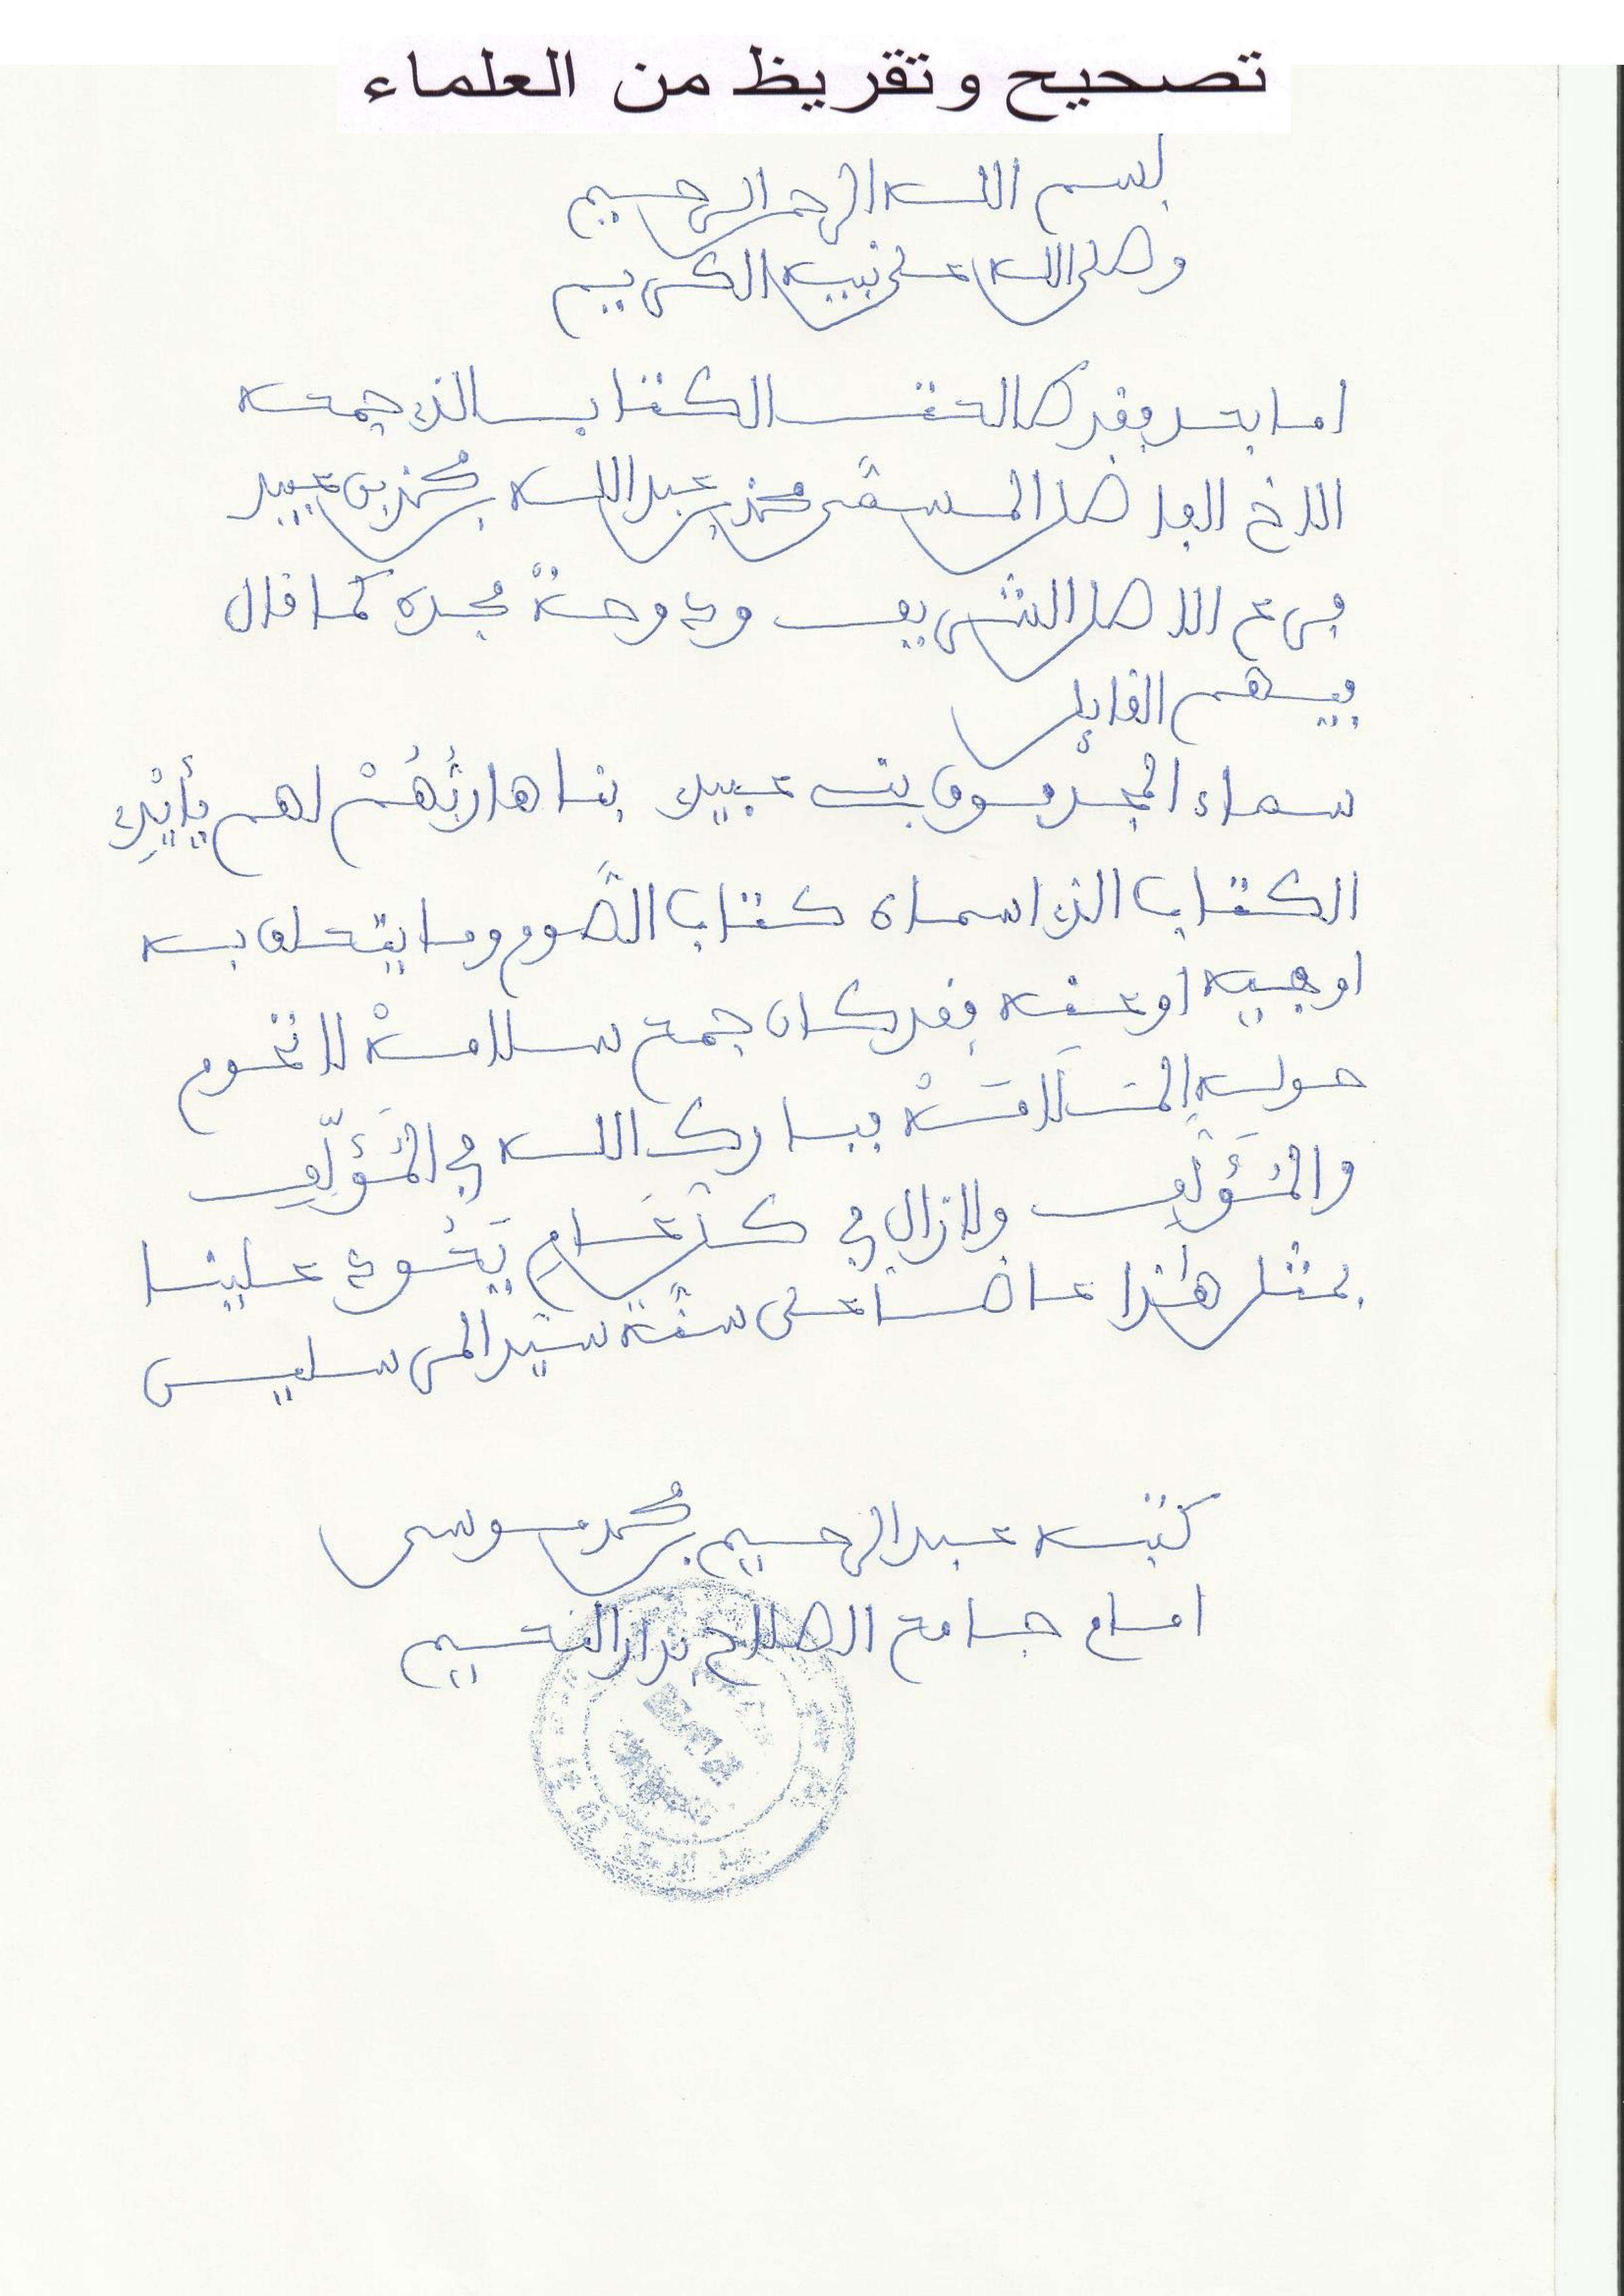 تصحيح وتقريظ من العلماء
بسم الله الرحمن الرحيم
وصلى الله على نبيه الكريم
اما بعد فقد طالعت الكتاب الذي جمعه
الاخ الفاضل المسمَّى محمد بن عبد الله بن مُحمد بن عبيد
فرع الاصل الشريف ودوحة مجده كما قال
فيهم القايل
سماء المجد فوق بني عبيد بناها ربُّهُمْ لهم بِأَيْدِ
الكتاب الذي اسماه كتاب الصَّوم وما يتعلق به
اوجبيه او عينه فقد كان جمع سلامة لا تحوم
حوله المَلَامَة فبارك الله في المُؤَلِّف
والمُؤَلَّف ولازال في كل عَام يَجُود علينا
بمثل هٰذا عاضا على سنَّة سيّد المرسلين
كتبه عبد الرحيم بن مُحمد موسى
امام جامع الصلاح بدار النعيم